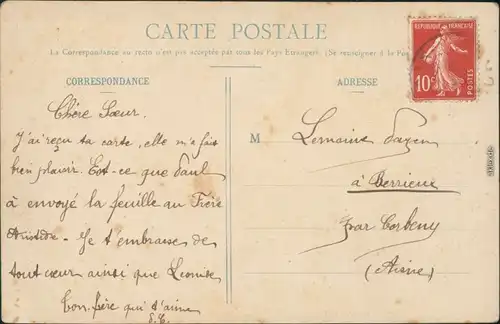 CARTE POSTALE
La Correspondance au recto n'est pas acceptée par tous les Pays Etrangers. (Se renseigner à la Poste
RÉPUBLIQUE FRANÇAISE
10c
POSTES
CORRESPONDANCE
ADRESSE
Chère Sœur.
J'ai reçu ta carte, elle m'a fait
bien plaisir. Est-ce que Paul
à envoyé la feuille au Frère
Aristide. Je t'embrasse de
tout cœur ainsi que Léonise
Ton frère qui t'aime
M Lemaine
à Berrieux
par Corbeny
(Aisne)